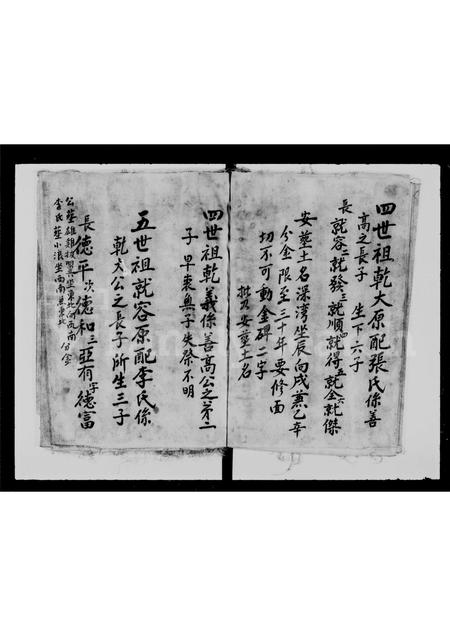 四世祖乾大原配張氏係善
高之長子 坐下六子
長就容二就發三就順四就得五就全六就傑
安塟土名深灣坐辰向戌兼乙辛
分金限至三十年要修面
切不可動金碑二字
批及安塟土名
四世祖乾義係善高公之第二
子早喪無子失祭不明
五世祖就容原配李氏係
乾大公之長子所生三子
長德平次德和三亞有字德富
李氏塟小浪坐西南兼東北